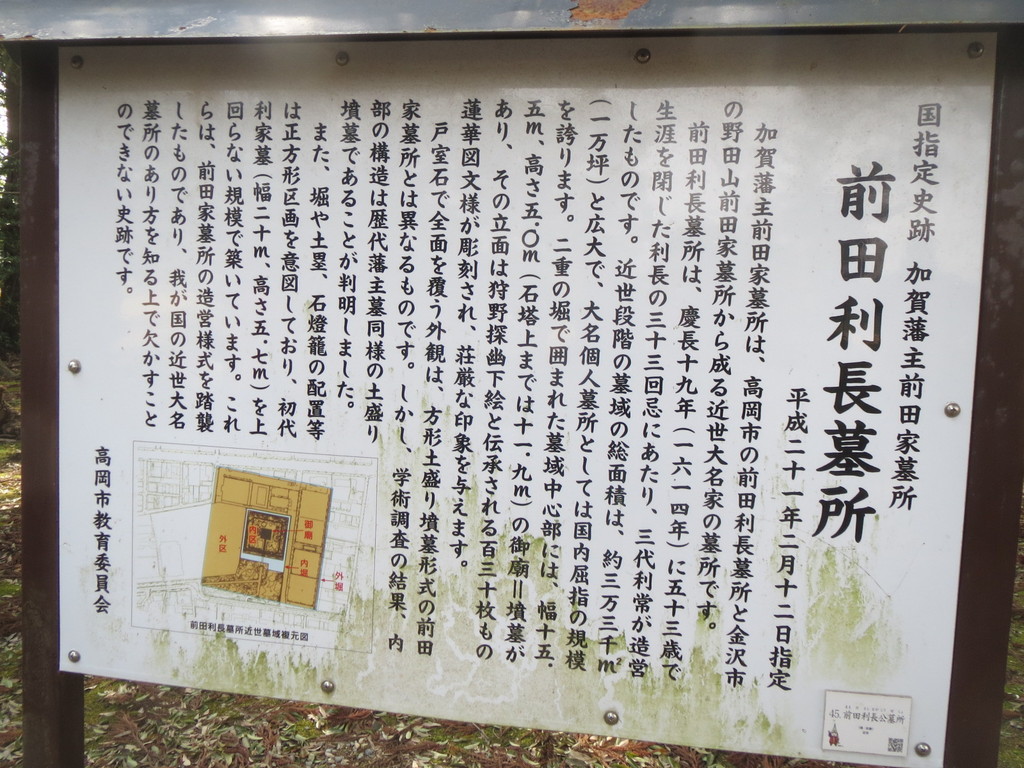 国指定史跡 加賀藩主前田家墓所
前田利長墓所
平成二十一年二月十二日指定
加賀藩主前田家墓所は、高岡市の前田利長墓所と金沢市
の野田山前田家墓所から成る近世大名家の墓所です。
前田利長墓所は、慶長十九年(一六一四年)に五十三歳で
生涯を閉じた利長の三十三回忌にあたり、三代利常が造営
したものです。近世段階の墓域の総面積は、約三万三千㎡
(一万坪)と広大で、大名個人墓所としては国内屈指の規模
を誇ります。二重の堀で囲まれた墓域中心部には、幅十五.
五m、高さ五.〇m(石塔上までは十一.九m)の御廟=墳墓が
あり、その立面は狩野探幽下絵と伝承される百三十枚もの
蓮華図文様が彫刻され、荘厳な印象を与えます。
戸室石で全面を覆う外観は、方形土盛り墳墓形式の前田
家墓所とは異なるものです。しかし、学術調査の結果、内
部の構造は歴代藩主墓同様の土盛り
墳墓であることが判明しました。
また、堀や土塁、石燈籠の配置等
は正方形区画を意図しており、初代
利家墓(幅二十m、高さ五.七m)を上
回らない規模で築いています。これ
らは、前田家墓所の造営様式を踏襲
したものであり、我が国の近世大名
墓所のあり方を知る上で欠かすこと
のできない史跡です。
高岡市教育委員会
外区
内区
御廟
内堀
外堀
前田利長墓所近世墓域複元図
45.前田利長公墓所